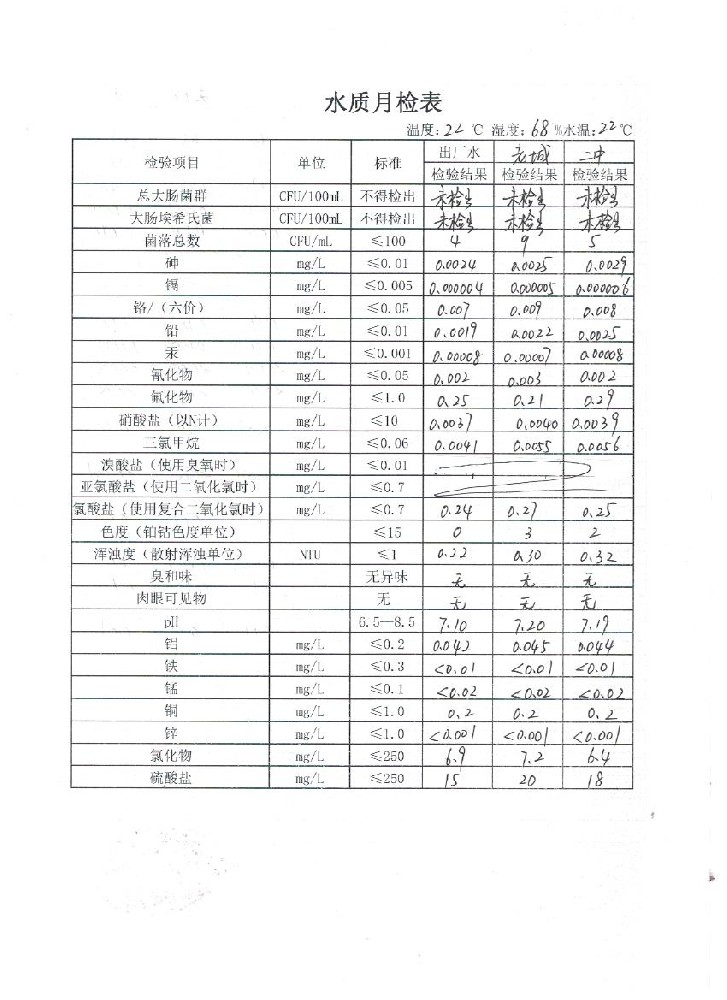 水质月检表
温度:22℃ 湿度:68%水温:22℃
检验项目 单位 标准 出厂水 老城 二中
检验结果 检验结果 检验结果
总大肠菌群 CFU/100mL 不得检出 未检出 未检出 未检出
大肠埃希氏菌 CFU/100mL 不得检出 未检出 未检出 未检出
菌落总数 CFU/mL ≤100 4 9 5
砷 mg/L ≤0.01 0.0024 0.0025 0.0029
镉 mg/L ≤0.005 0.000004 0.000005 0.000006
铬/(六价) mg/L ≤0.05 0.007 0.009 0.008
铅 mg/L ≤0.01 0.0019 0.0022 0.0025
汞 mg/L ≤0.001 0.00008 0.00007 0.00008
氰化物 mg/L ≤0.05 0.002 0.003 0.002
氟化物 mg/L ≤1.0 0.25 0.21 0.29
硝酸盐(以N计) mg/L ≤10 0.0037 0.0040 0.0039
三氯甲烷 mg/L ≤0.06 0.0041 0.0055 0.0056
溴酸盐(使用臭氧时) mg/L ≤0.01
亚氯酸盐(使用二氧化氯时) mg/L ≤0.7
氯酸盐(使用复合二氧化氯时) mg/L ≤0.7 0.24 0.27 0.25
色度(铂钴色度单位) ≤15 0 3 2
浑浊度(散射浑浊单位) NTU ≤1 0.30 0.32
臭和味 无异味 无 无 无
肉眼可见物 无 无 无 无
pH 6.5—8.5 7.10 7.20 7.19
铝 mg/L ≤0.2 0.042 0.045 0.044
铁 mg/L ≤0.3 <0.01 <0.01 <0.01
锰 mg/L ≤0.1 <0.02 <0.02 <0.02
铜 mg/L ≤1.0 0.2 0.2 0.2
锌 mg/L ≤1.0 <0.001 <0.001 <0.001
氯化物 mg/L ≤250 6.9 7.2 6.4
硫酸盐 mg/L ≤250 15 20 18